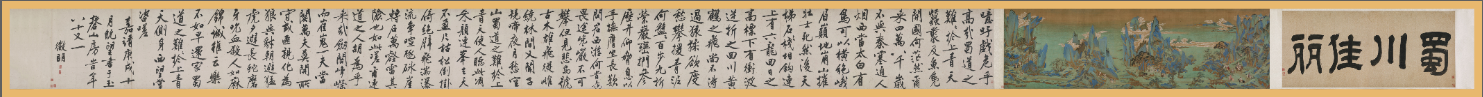 蜀川佳丽
噫吁戲危乎
高哉蜀道之
難難於上青天
蠶叢及魚鳧
開國何茫然爾
來四萬八千歲
不與秦塞通人
煙西當太白有
鳥道可以橫絕峨
眉巔地崩山摧
壯士死然後天
梯石棧相鉤連
上有六龍回日之
高標下有衝波
逆折之回川黃
鶴之飛尚不得
過猿猱欲度
愁攀援青泥
何盤盤百步九折
縈巖巒捫參
歷井仰脅息以
手撫膺坐長歎
問君西遊何當還
畏途巉巖不可
攀但見悲鳥號
古木雄飛雌從
繞林間又聞子規
啼夜月愁空
山蜀道之難難於上
青天使人聽此凋
朱顏連峯去天
不盈尺枯松倒掛
倚絕壁飛湍瀑
流爭喧豗砯崖
轉石萬壑雷其
險也如此嗟爾遠
道之人胡為乎
來哉劍閣崢嶸
而崔嵬一夫當
關萬夫莫開所
守或匪親化為
狼與豺朝避猛
虎夕避長蛇磨
牙吮血殺人如麻
錦城雖云樂
不如早還家蜀
道之難難於上青
天側身西望長
咨嗟
嘉靖庚戌十
月既望書于玉
磬山房時年
八十又一
徵明